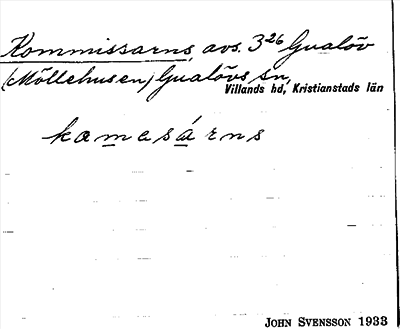 Kommissarns, avs. 3²⁶ Gualöv
(Möllehusen) Gualövs sn,
Villands hd, Kristianstads län
kamesárns
JOHN SVENSSON 1933